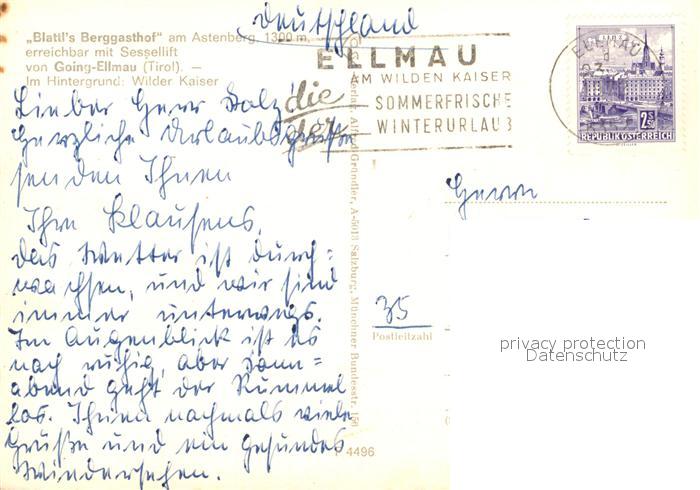 Deutschland
„Blattl's Berggasthof" am Astenberg, 1300 m,
erreichbar mit Sessellift
von Going-Ellmau (Tirol). —
Im Hintergrund: Wilder Kaiser
Lieber Herr Bolz!
Herzliche Urlaubsgrüße
senden Ihnen
Ihre Klausens.
Das Wetter ist durch=
wachsen, und wir sind
immer unterwegs.
Im Augenblick ist es
noch ruhig, aber sonn=
abend geht der Rummel
los. Ihnen nochmals viele
Grüße und ein gesundes
Wiedersehen.
ELLMAU
AM WILDEN KAISER
die SOMMERFRISCHE
WINTERURLAUB
ELLMAU
LINZ
2.50
REPUBLIK ÖSTERREICH
Verlag Alfred Gründler, A-5013 Salzburg, Münchner Bundesstr. 150
Herrn
35
Postleitzahl
privacy protection
Datenschutz
P 4496